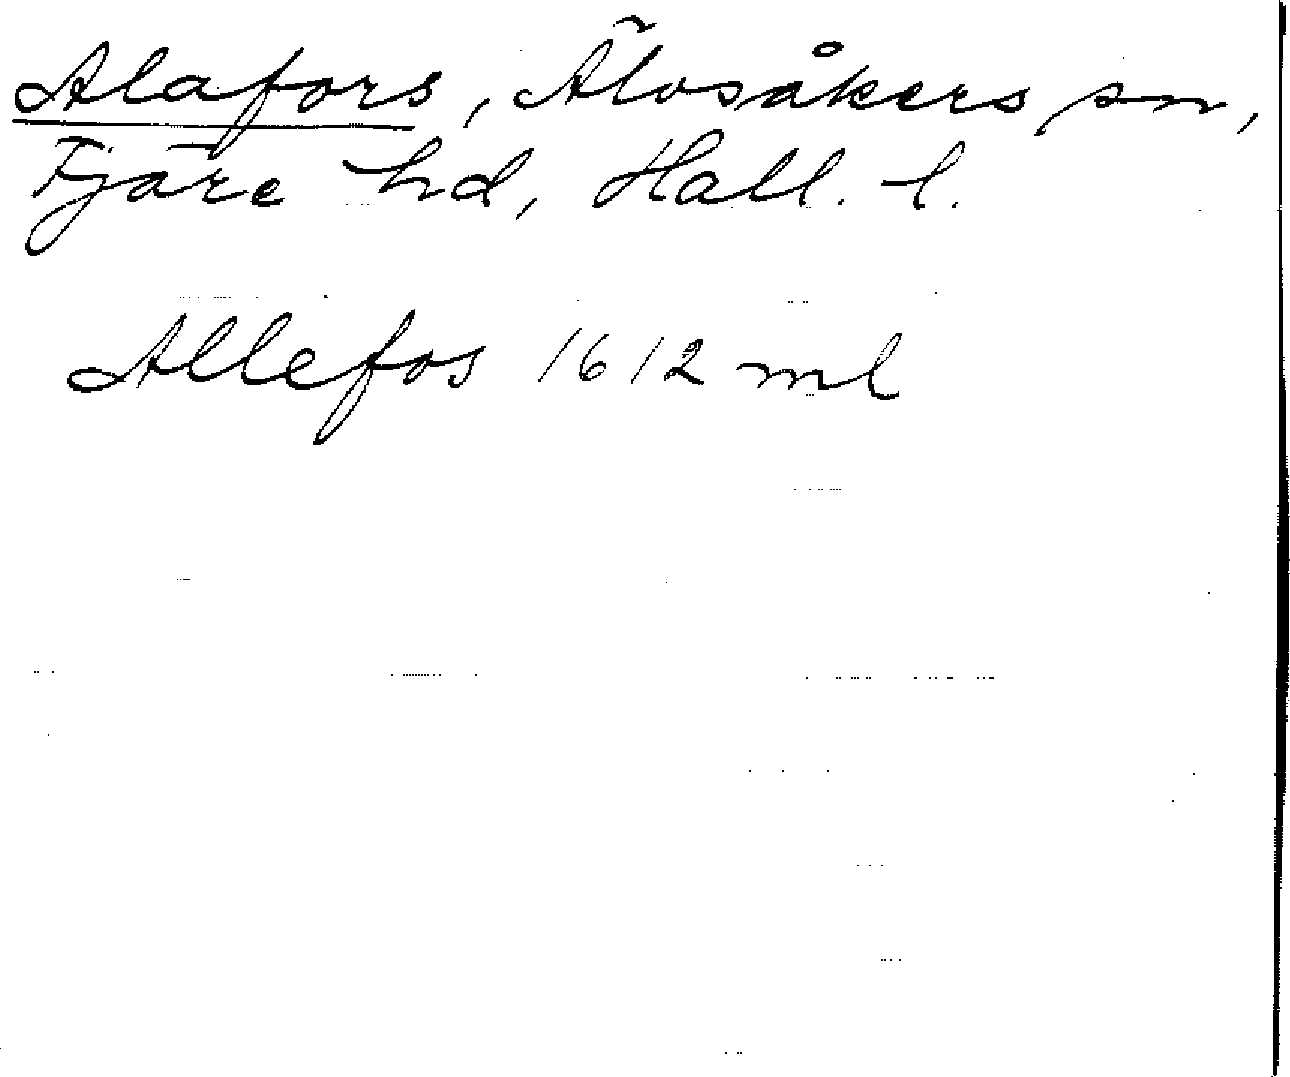 Alafors, Älvsåkers sn,
Fjäre hd, Hall. l.
Allefos 1612 ml